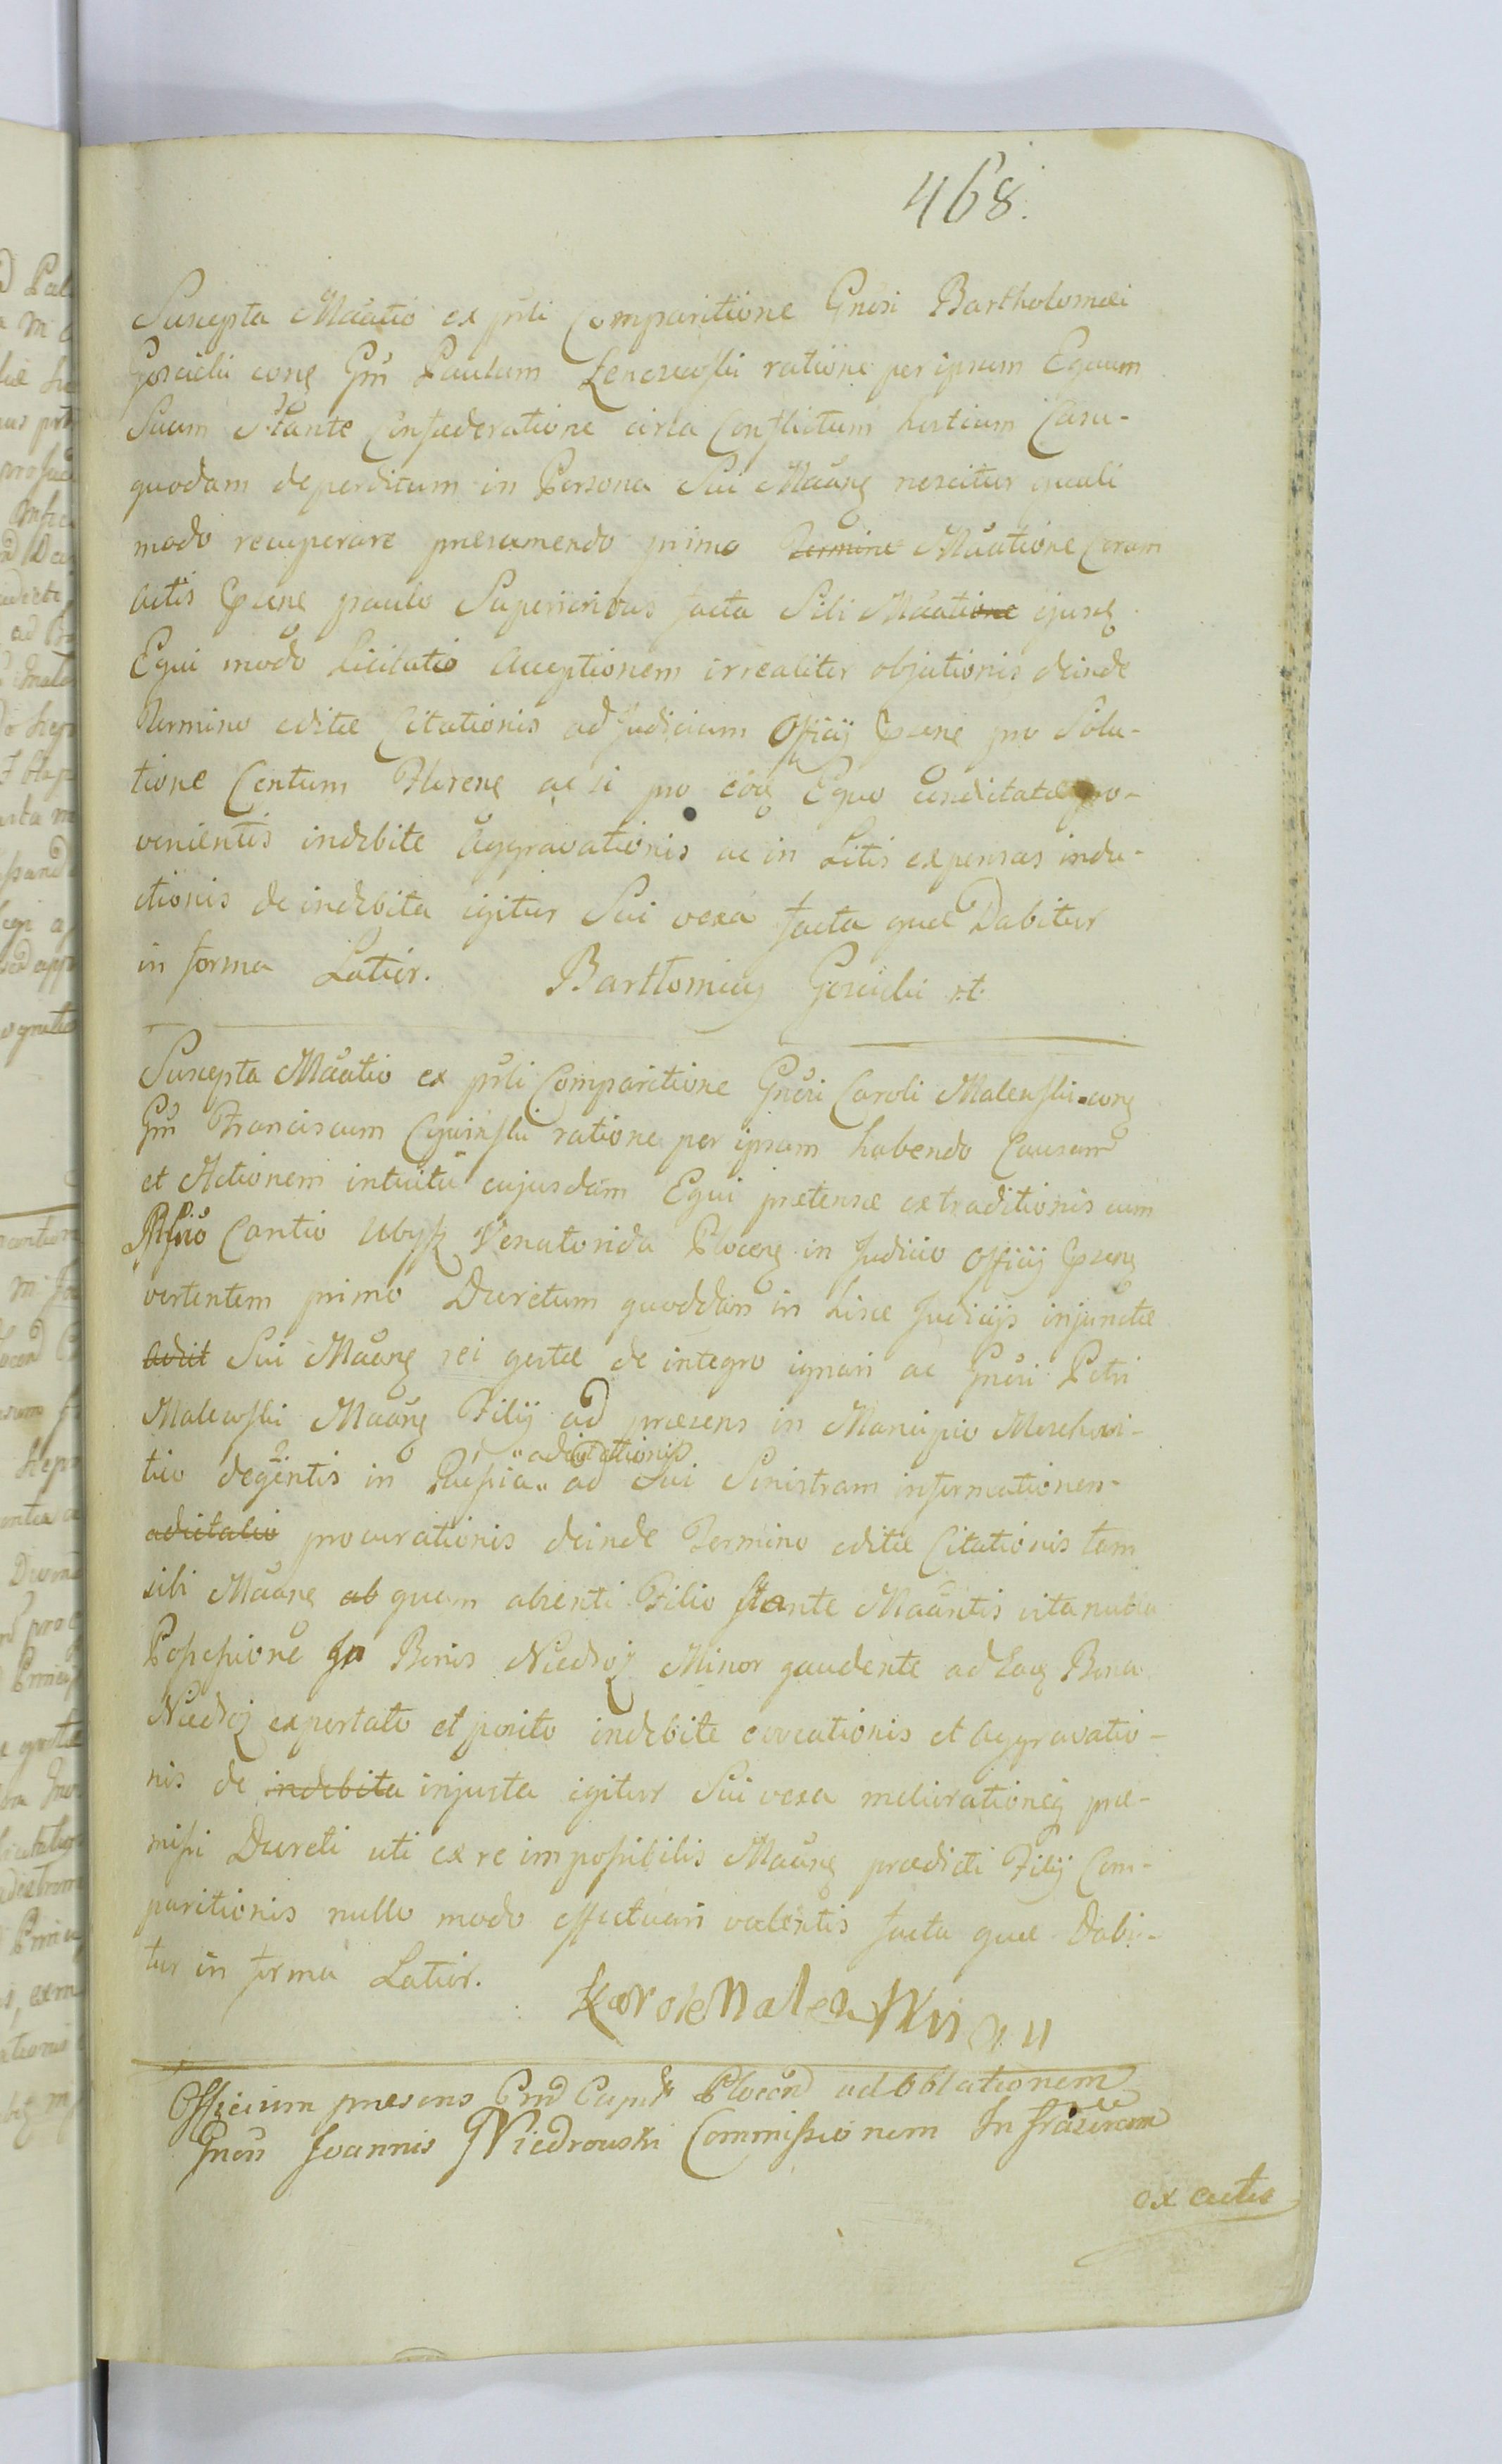 468.
Suscepta Mãatio ex pñti Comparitione Gñosi Bartholomei
Goscicki conq Gm̃ Paulum Lenczewski ratione per ipsum Equum
Suum Stante Confœderatione circa Conflictum hostium Casu-
quodam deperditum in Persona Sui Mãanq nescitur quali
modo recuperare præsumendo primo Termino Mãatione Coram
Actis Exene paulo Superioribus facta Sibi Mãatione ejusq
Equi modo Licitatio Acceptionem irrealiter objectionis deinde
Termino editæ Citationis ad Judicium Officij Exene pro Solu-
tione Centum Florenq ac si pro eoq Equo
venientis indebite Aggravationis ac in Litis expensas indu-
ctionis de indebita igitur Sui vexa facta quæ Dabitur
in forma Latior. Bartłomiey Goscicki
Suscepta Mãatio ex pñti Comparitione Gñosi Caroli Malewski conq
Gm̃ Franciscum ratione per ipsam habendo Causam
et Actionem intuitu cujusdam Equi prætensæ extraditionis cum
Cantio Ubysz Venatorida Plocenq in Judicio Officij Exenq
vertentem primo Decretum quoddam in hisce Judicijs injunctæ
Sui Mãanq rei gestæ de integro ignari ac Gñosi Petri
Malewski Mãanq Filij ad præsens in Mancipio Moschovi-
tico degentis in Russia " ad Sui Sinistram informationem-
" adcitationis
adcitatio procurationis deinde Termino editæ Citationis tam
sibi Mãanq ab quam absenti Filio stante Mãantis vita nulla
Possessione In Bonis Niedroż Minor gaudente ad Eaq Bona
Niedroż exportato et posito indebite evocationis et Aggravatio-
nis de indebita injusta igitur Sui vexa meliorationeq præ-
missi Decreti uti ex re impossibilis Mãanq prædicti Filij Com-
paritionis nullo modo effectuari valentis facta quæ Dabi-
tur in forma Latior.
Karol Malewski
Officium præsens Plocen ad Oblationem
Gñosi Joannis Niedrowski Commissionem Infrascriptam
ex actis